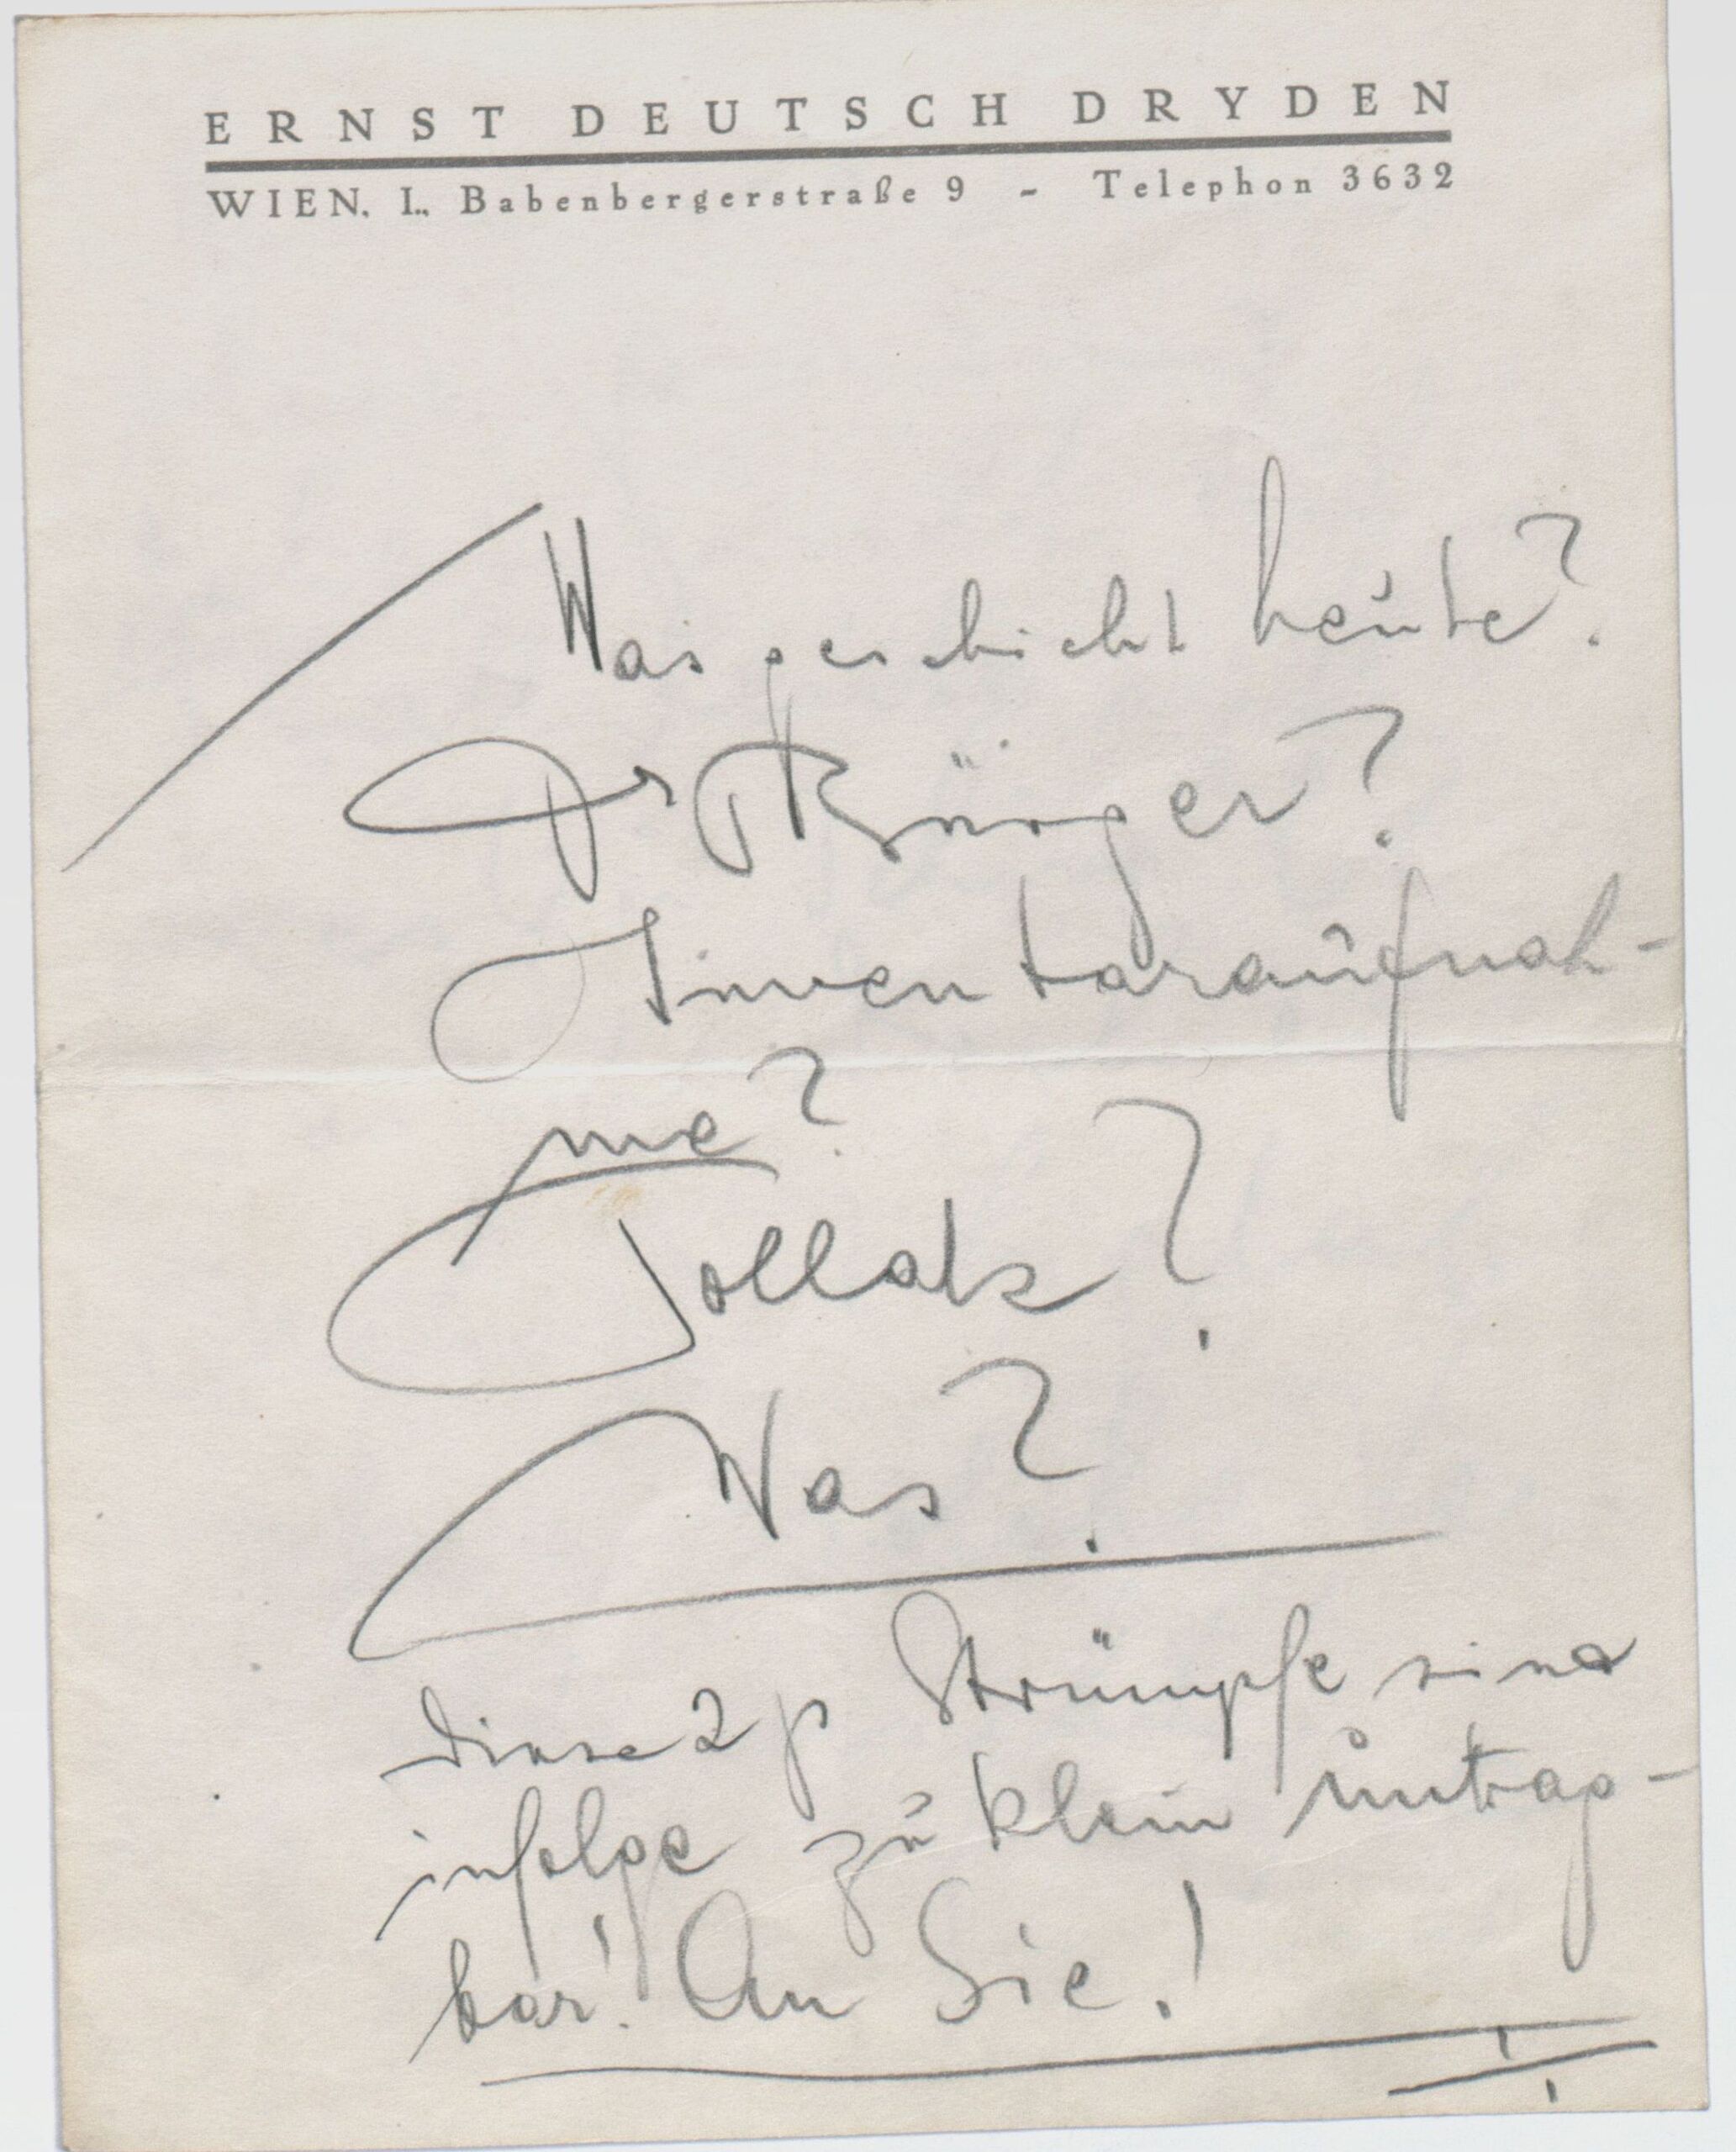 ERNST DEUTSCH DRYDEN
WIEN. I., Babenbergerstraße 9 - Telephon 3632
Was geschicht heute?
Dr Bürger?
Inventaraufnah-
me?
Pollak?
Was?
Diese 2 p Strümpfe sind
infolge zu klein untrag-
bar! An Sie!